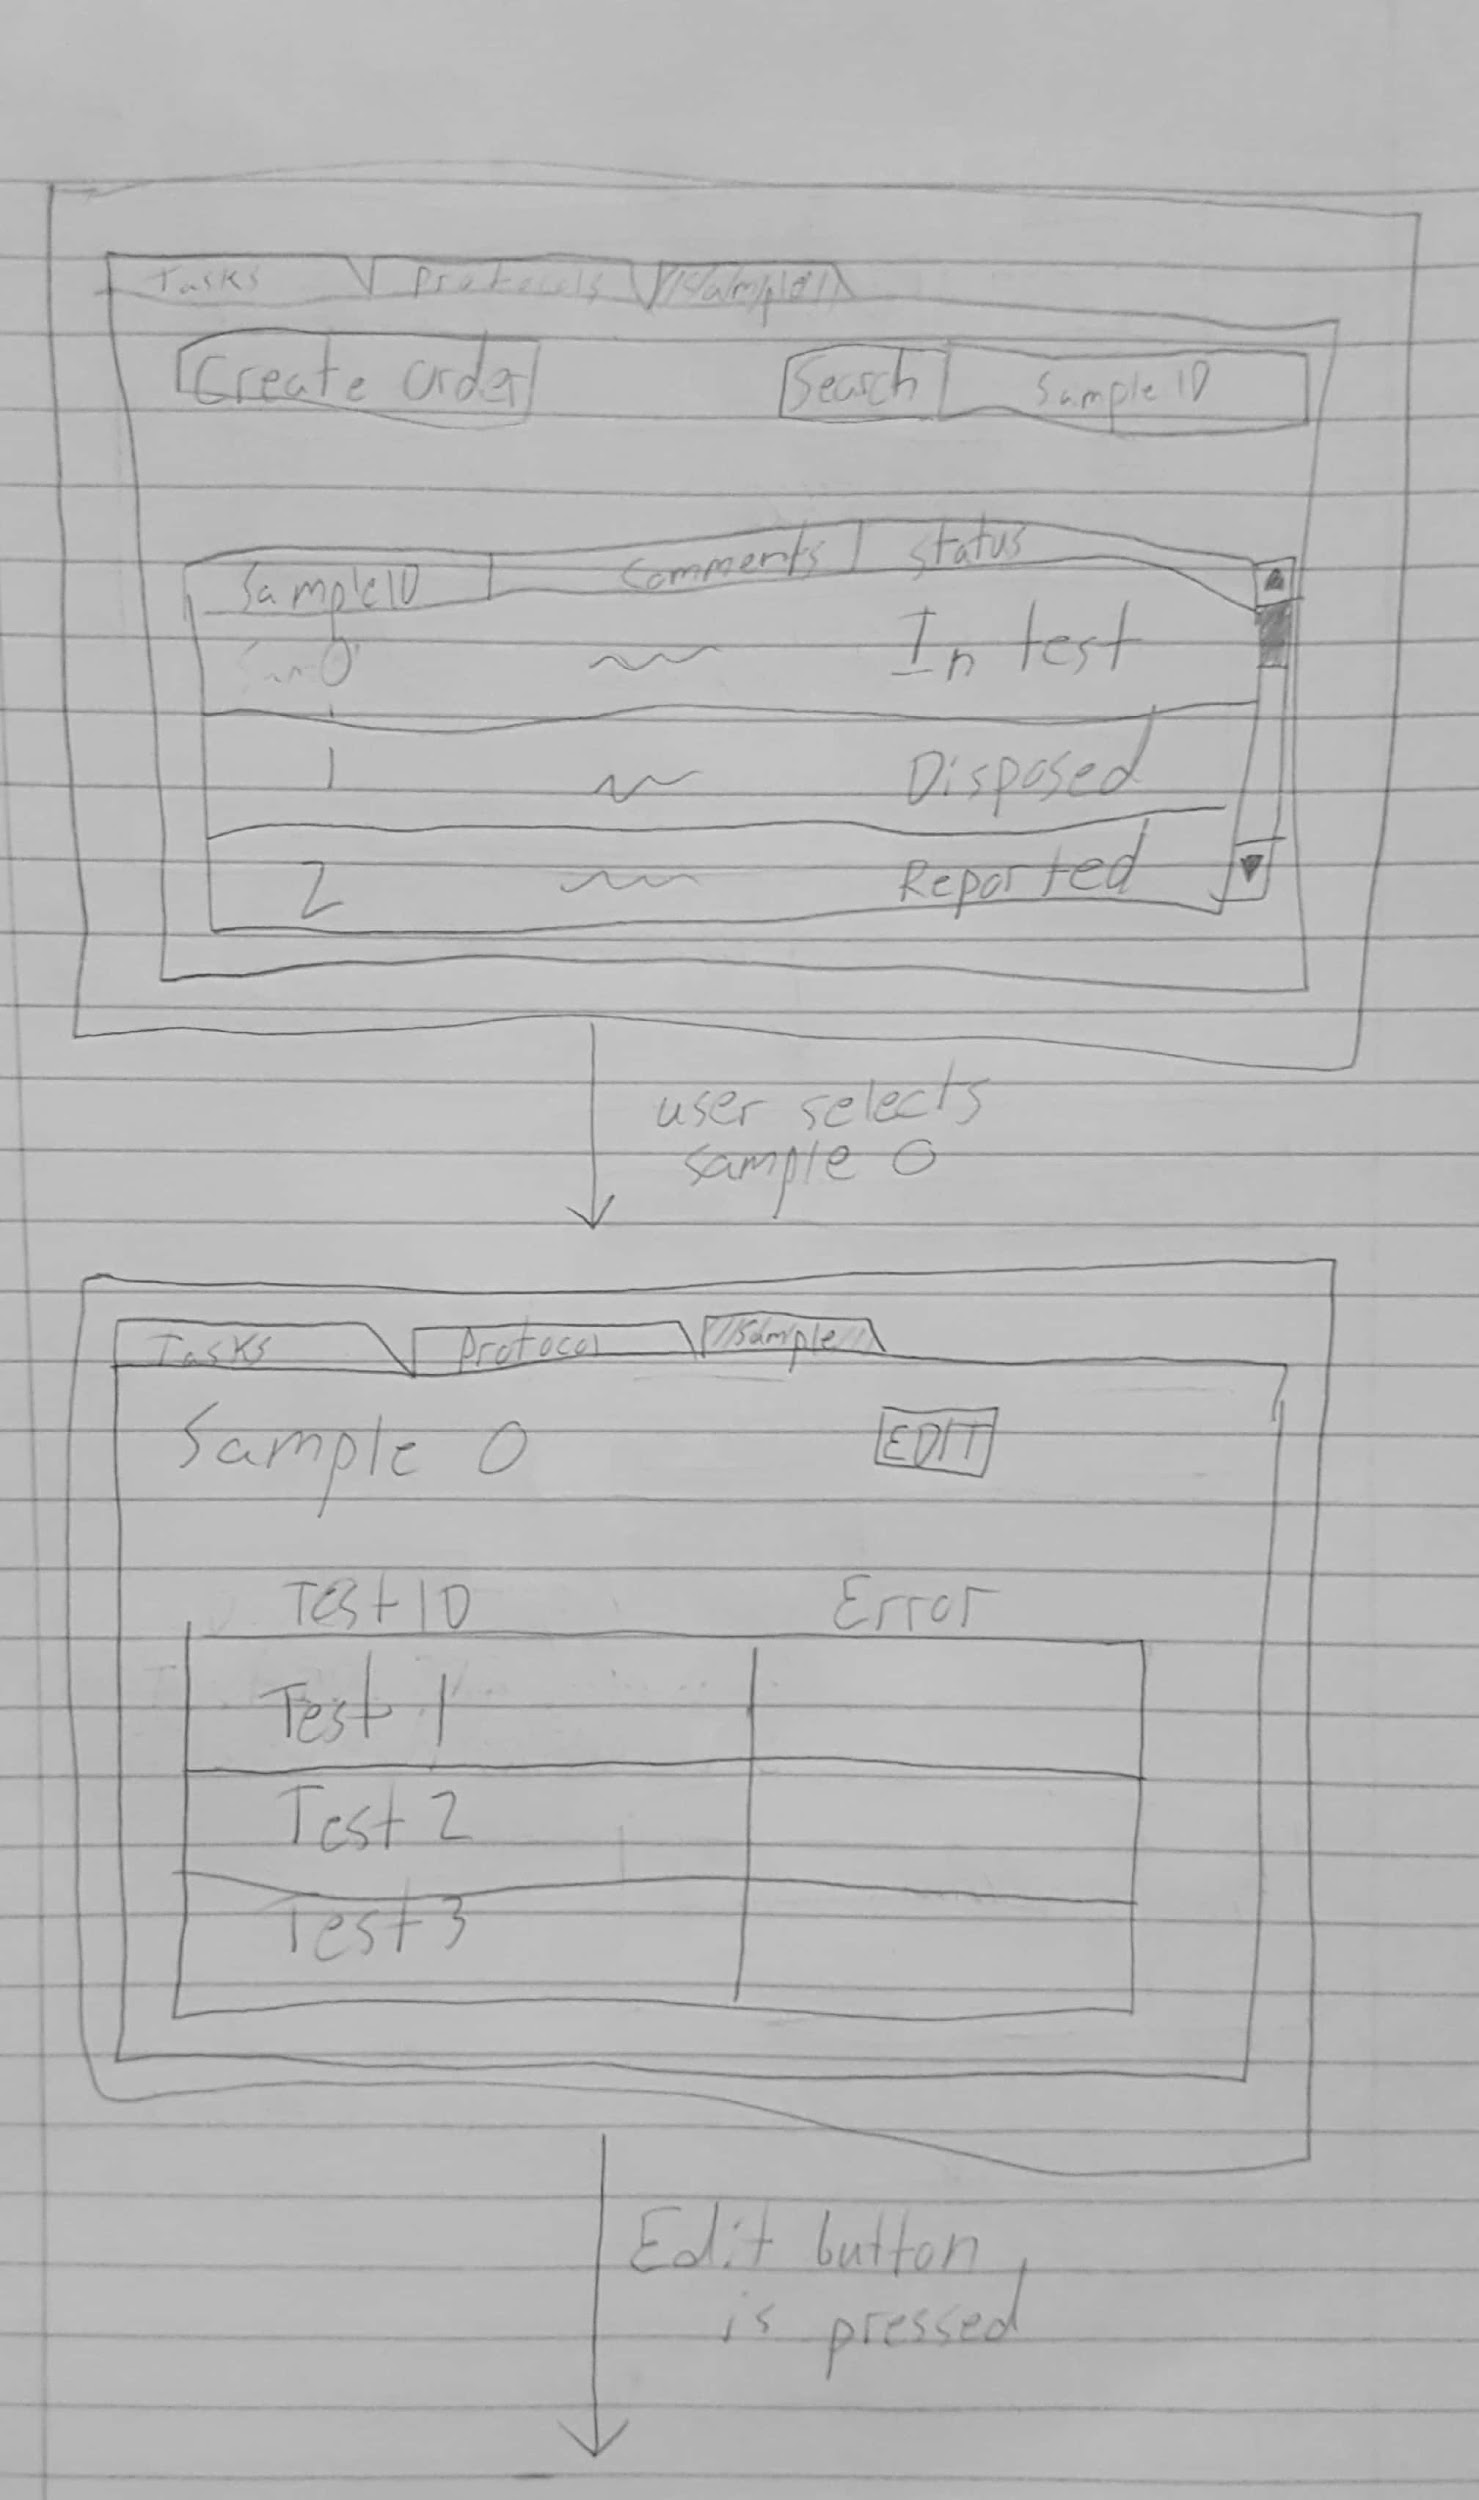 Tasks Protocols Sample
Create Order Search Sample ID
Sample ID Comments Status
0 In test
1 Disposed
2 Reported
user selects
sample 0
Tasks Protocol Sample
Sample 0 EDIT
Test ID Error
Test 1
Test 2
Test 3
Edit button
is pressed